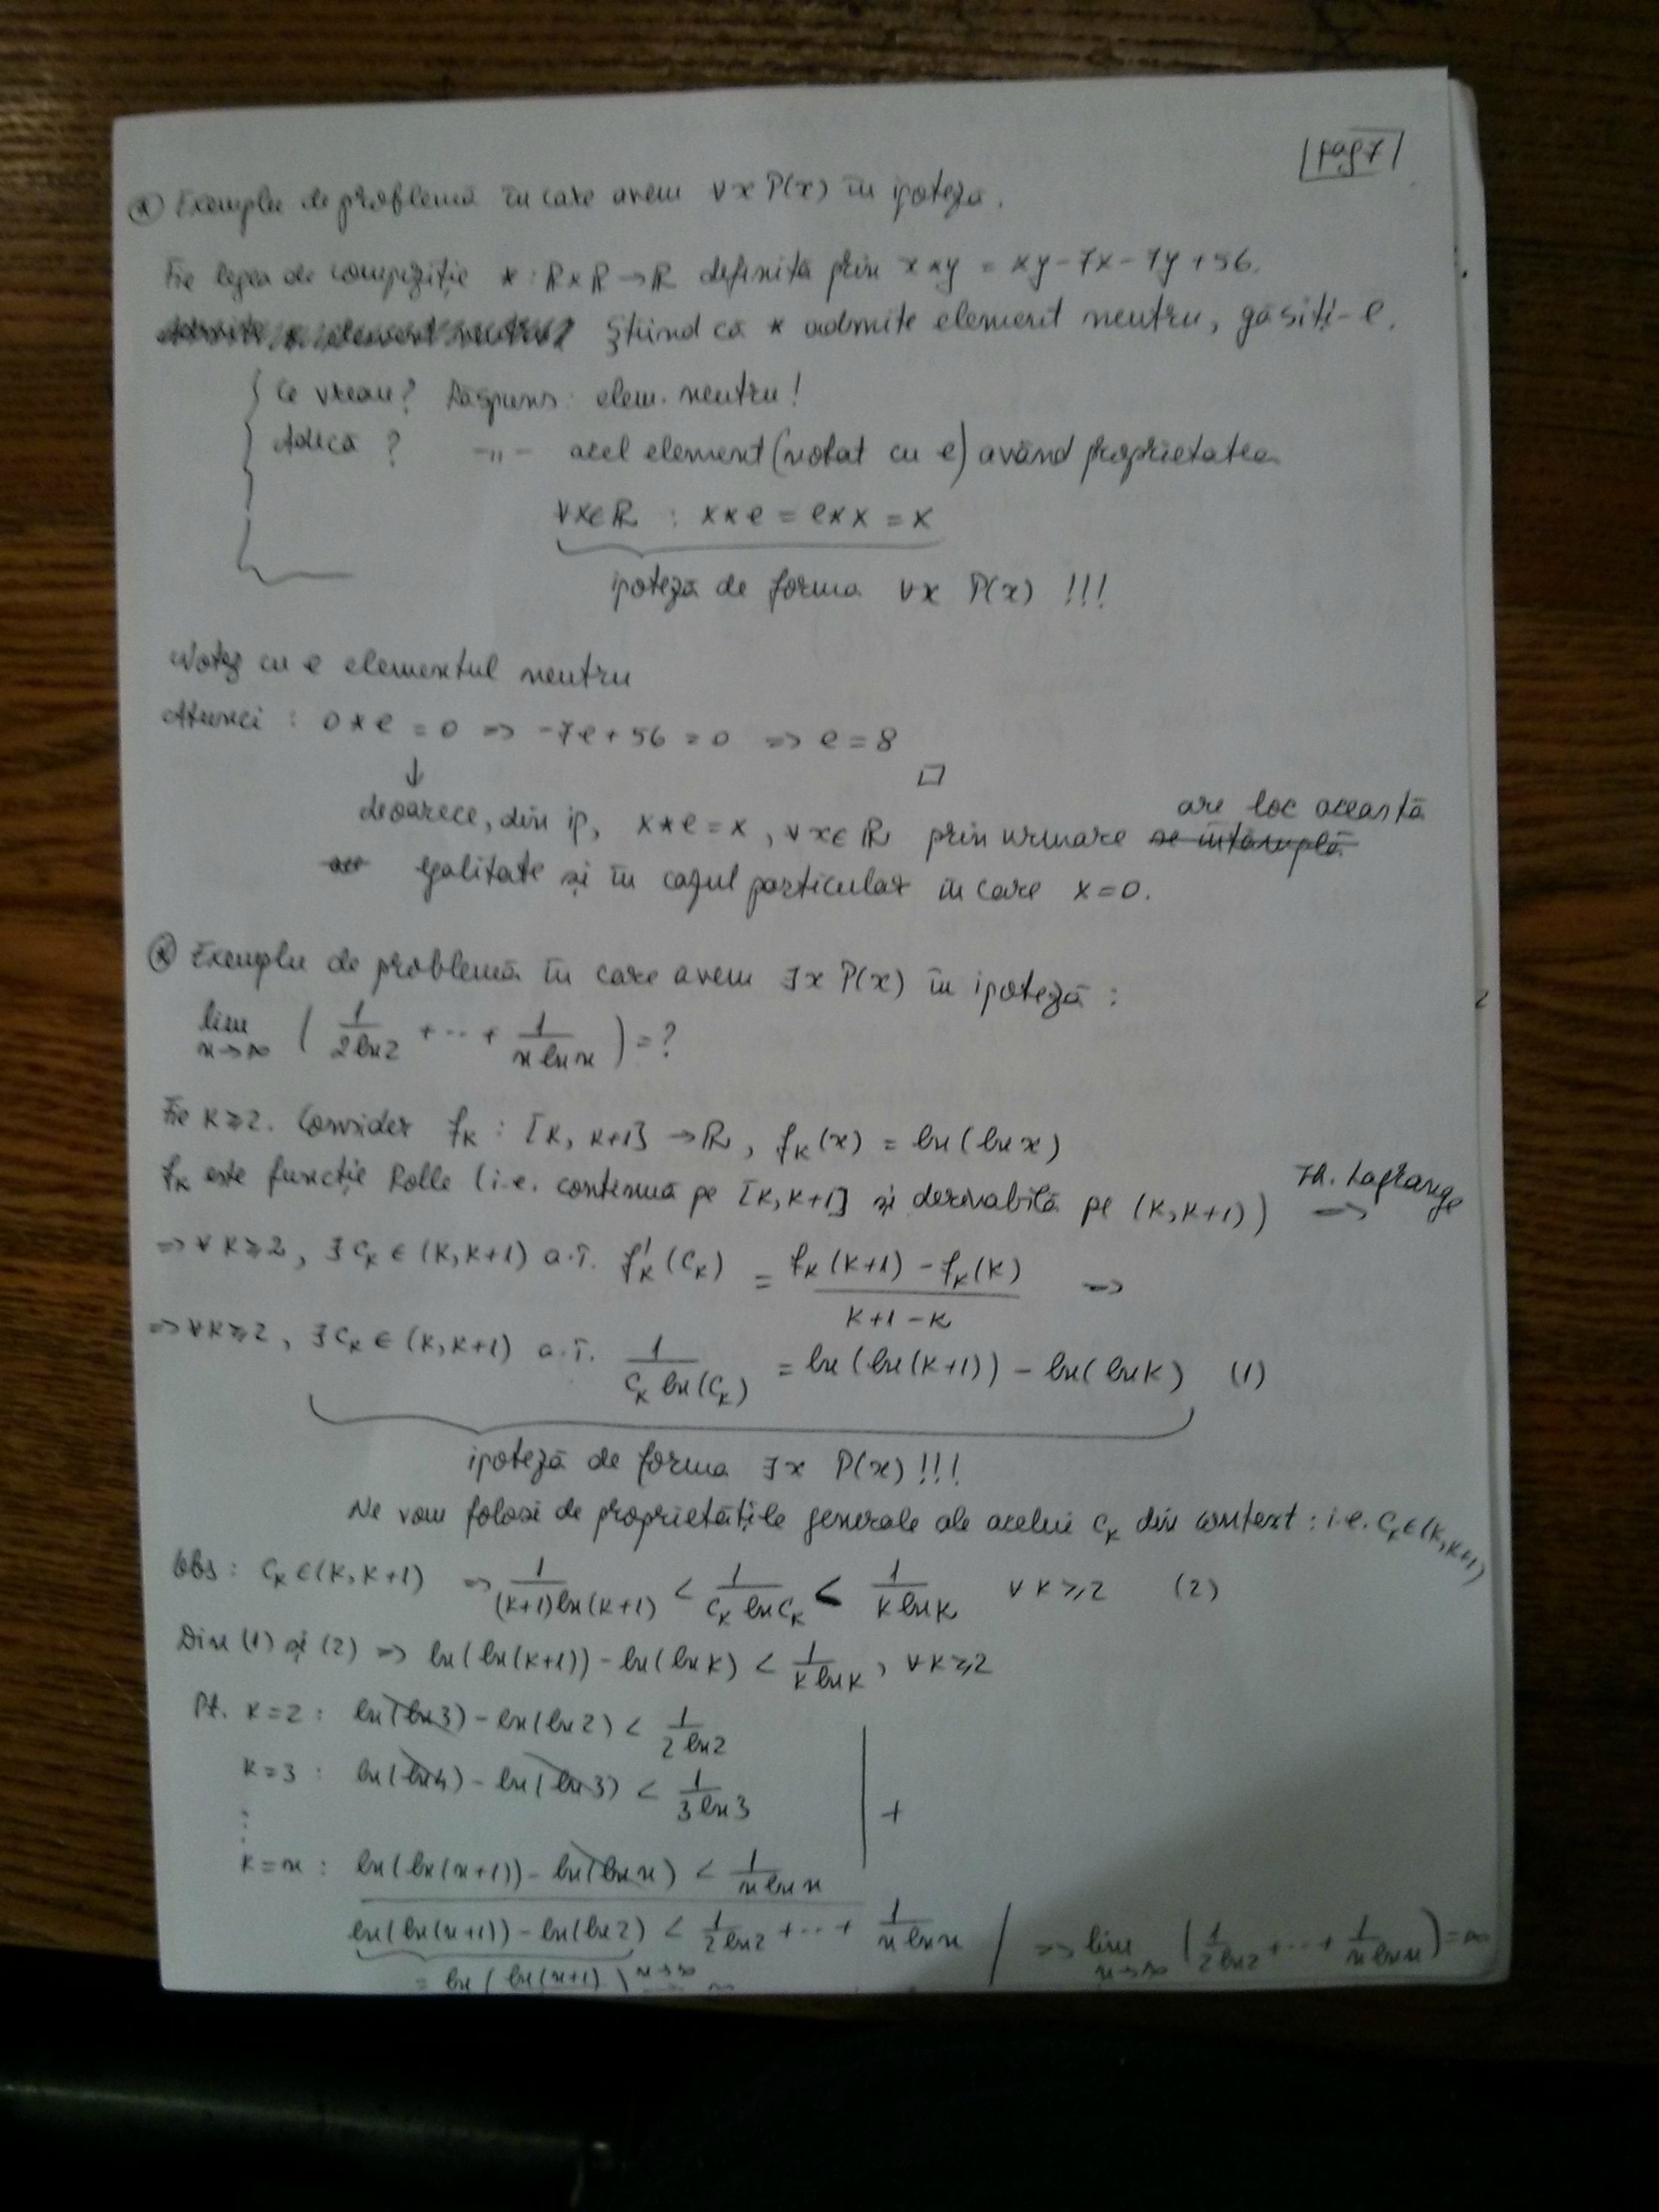 pag 7
⊛ Exemplu de problemă în care avem ∀x P(x) în ipoteză.
Fie legea de compoziție * : R×R→R definită prin x*y = xy-7x-7y+56.
Știind că * admite element neutru, găsiți-l.
Ce vreau? Răspuns: elem. neutru!
Adică? -"- acel element (notat cu e) având proprietatea
∀x∈R : x*e = e*x = x
ipoteză de forma ∀x P(x) !!!
Notez cu e elementul neutru
Atunci : 0*e = 0 => -7e+56 = 0 => e = 8
↓ □
deoarece, din ip, x*e=x, ∀x∈R prin urmare se întâmplă are loc această
egalitate și în cazul particular în care x=0.
⊛ Exemplu de problemă în care avem ∃x P(x) în ipoteză :
lim n→∞ ( 1/(2 ln 2) + ... + 1/(n ln n) ) = ?
Fie k≥2. Consider f_k : [k, k+1] → R, f_k(x) = ln(ln x)
f_k este funcție Rolle (i.e. continuă pe [k, k+1] și derivabilă pe (k, k+1)) Th. Lagrange =>
=> ∀k≥2, ∃c_k ∈ (k, k+1) a.î. f'_k(c_k) = (f_k(k+1) - f_k(k))/(k+1-k) =>
=> ∀k≥2, ∃c_k ∈ (k, k+1) a.î. 1/(c_k ln(c_k)) = ln(ln(k+1)) - ln(ln k) (1)
ipoteză de forma ∃x P(x) !!!
Ne vom folosi de proprietățile generale ale acelui c_k din context : i.e. c_k∈(k, k+1)
Obs : c_k∈(k, k+1) => 1/((k+1)ln(k+1)) < 1/(c_k ln c_k) < 1/(k ln k) ∀k≥2 (2)
Din (1) și (2) => ln(ln(k+1)) - ln(ln k) < 1/(k ln k), ∀k≥2
Pt. k=2 : ln(ln 3) - ln(ln 2) < 1/(2 ln 2)
k=3 : ln(ln 4) - ln(ln 3) < 1/(3 ln 3)
⋮ +
k=n : ln(ln(n+1)) - ln(ln n) < 1/(n ln n)
ln(ln(n+1)) - ln(ln 2) < 1/(2 ln 2) + ... + 1/(n ln n) => lim n→∞ (1/(2 ln 2) + ... + 1/(n ln n)) = ∞
= ln ( ln(n+1) ) n→∞